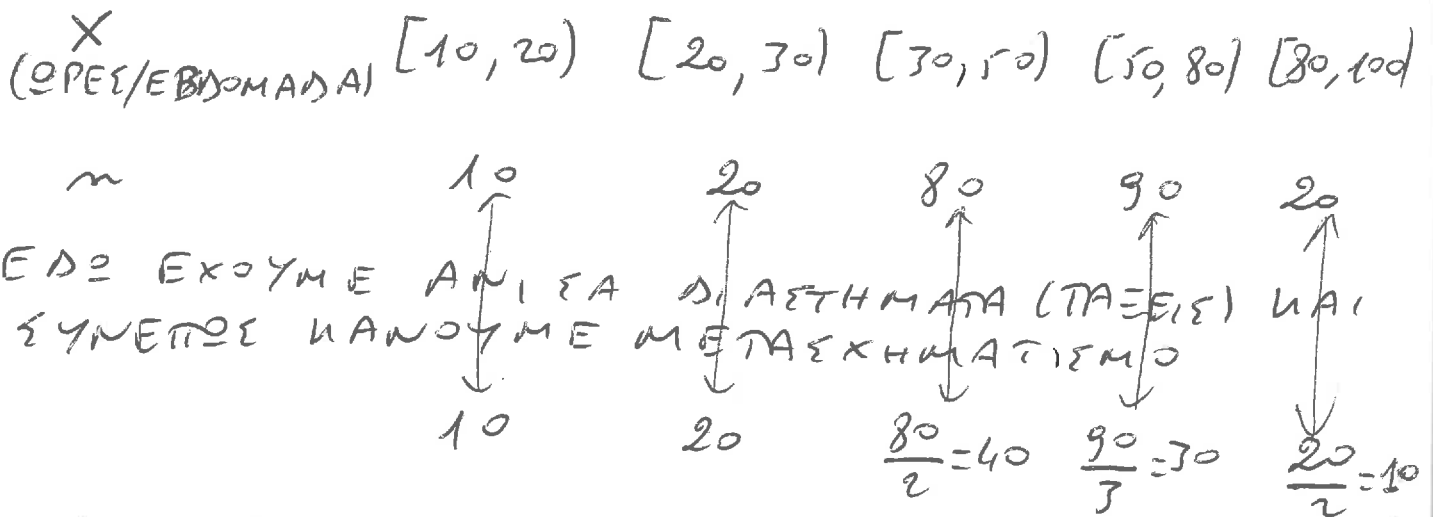 X
(ΩΡΕΣ/ΕΒΔΟΜΑΔΑ) [10, 20) [20, 30) [30, 50) [50, 80) [80, 100)
n 10 20 80 90 20
ΕΔΩ ΕΧΟΥΜΕ ΑΝΙΣΑ ΔΙΑΣΤΗΜΑΤΑ (ΤΑΞΕΙΣ) ΚΑΙ
ΣΥΝΕΠΩΣ ΚΑΝΟΥΜΕ ΜΕΤΑΣΧΗΜΑΤΙΣΜΟ
10 20 80/2=40 90/3=30 20/2=10